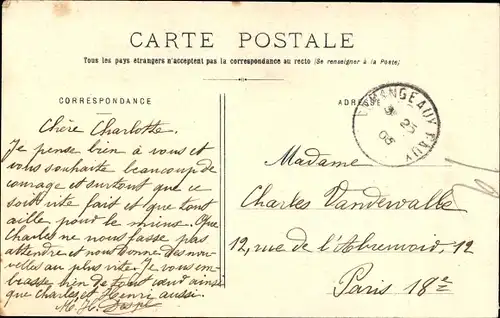 CARTE POSTALE
Tous les pays étrangers n'acceptent pas la correspondance au recto (Se renseigner à la Poste)
CORRESPONDANCE
ADRESSE
MANGEAUX
25
05
Chère Charlotte.
Je pense bien à vous et
vous souhaite beaucoup de
courage et surtout que ce
soit vite fait et que tout
aille pour le mieux. Que
Charles ne nous fasse pas
attendre et nous donne des nou-
velles au plus vite. Je vous em-
brasse bien de tout cœur ainsi
que Charles et Henri aussi.
M. H.
Madame
Charles Vandewalle
12, rue de l'Abreuvoir, 12
Paris 18e